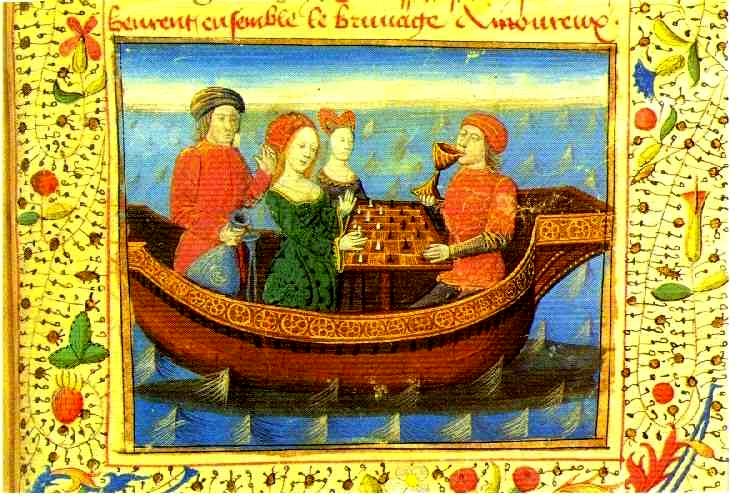 beurent ensemble le bruuage Amoureux.